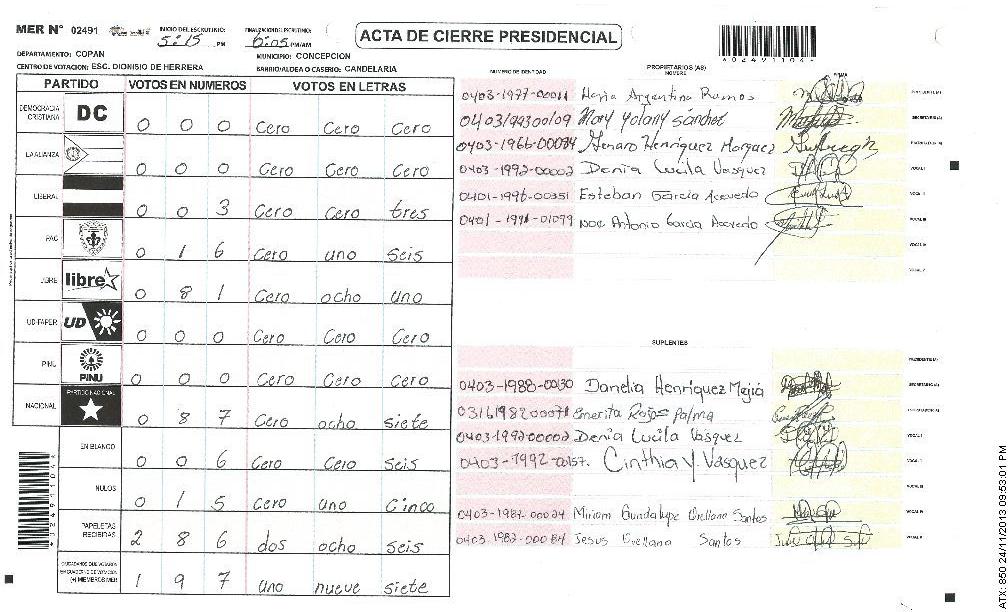 MER N° 02491
INICIO DEL ESCRUTINIO: 5:15 PM
FINALIZACION DEL ESCRUTINIO: 6:05 PM/AM
ACTA DE CIERRE PRESIDENCIAL
DEPARTAMENTO: COPAN
MUNICIPIO: CONCEPCION
CENTRO DE VOTACION: ESC. DIONISIO DE HERRERA
BARRIO/ALDEA O CASERIO: CANDELARIA
PARTIDO VOTOS EN NUMEROS VOTOS EN LETRAS
DEMOCRACIA CRISTIANA DC 0 0 0 Cero Cero Cero
LA ALIANZA 0 0 0 Cero Cero Cero
LIBERAL 0 0 3 Cero Cero tres
PAC 0 1 6 Cero uno seis
LIBRE libre 0 8 1 Cero ocho uno
UD-FAPER UD 0 0 0 Cero Cero Cero
PINU PINU 0 0 0 Cero Cero Cero
NACIONAL PARTIDO NACIONAL 0 8 7 Cero ocho siete
EN BLANCO 0 0 6 Cero Cero Seis
NULOS 0 1 5 Cero uno Cinco
PAPELETAS RECIBIDAS 2 8 6 dos ocho seis
CIUDADANOS QUE VOTARON EN CUADERNO DE VOTACION (+) MIEMBROS MER 1 9 7 uno nueve siete
*02491104*
NUMERO DE IDENTIDAD
PROPIETARIOS (AS)
NOMBRE
FIRMA
Argentina Ramos PRESIDENTE (A)
Mary Yolany Sanchez SECRETARIO (A)
0403-1966-00084 Genaro Henriquez Marquez
0403-1992-00002 Denia Lucila Vasquez VOCAL I
0401-1996-00351 Esteban Garcia Acevedo VOCAL II
Noe Antonio Garcia Acevedo VOCAL III
VOCAL IV
VOCAL V
SUPLENTES
PRESIDENTE (A)
0403-1988-00130 Danelia Henriquez Mejia SECRETARIO (A)
Emerita Rojas Palma
0403-1992-00002 Denia Lucila Vasquez VOCAL I
0403-1992-00157. Cinthia Y. Vasquez VOCAL II
VOCAL III
0403-1987-00024 Miriam Guadalupe Orellana Santos VOCAL IV
0403-1982-00084 Jesus Orellana Santos VOCAL V
ATX: 850 24/11/2013 09:53:01 PM